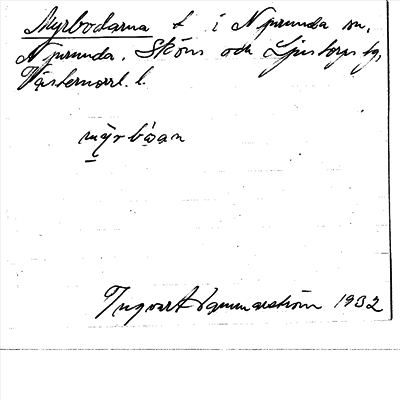 Myrbodarna t i Njurunda sn,
Njurunda, Sköns och Ljustorps tg,
Västernorrl. l.
myr bóan
Ingvar Hammarström 1932